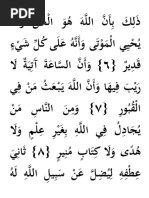 ذَلِكَ بِأَنَّ اللَّهَ هُوَ
يُحْيِي الْمَوْتَى وَأَنَّهُ عَلَى كُلِّ شَيْءٍ
قَدِيرٌ {٦} وَأَنَّ السَّاعَةَ آتِيَةٌ لَا
رَيْبَ فِيهَا وَأَنَّ اللَّهَ يَبْعَثُ مَنْ فِي
الْقُبُورِ {٧} وَمِنَ النَّاسِ مَنْ
يُجَادِلُ فِي اللَّهِ بِغَيْرِ عِلْمٍ وَلَا
هُدًى وَلَا كِتَابٍ مُنِيرٍ {٨} ثَانِيَ
عِطْفِهِ لِيُضِلَّ عَنْ سَبِيلِ اللَّهِ لَهُ